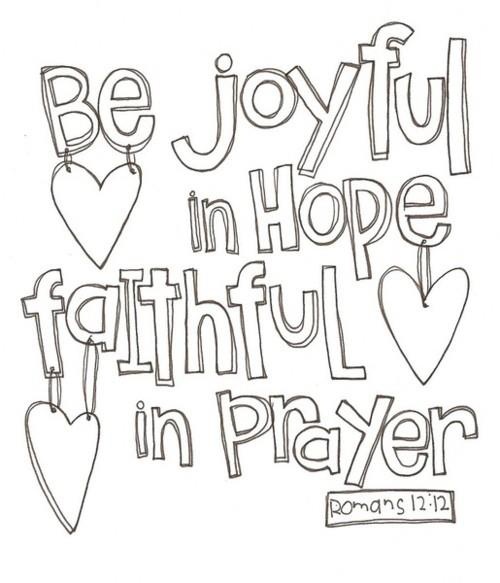 Be joyful
in Hope
faIthfuL
in prayer
Romans 12:12